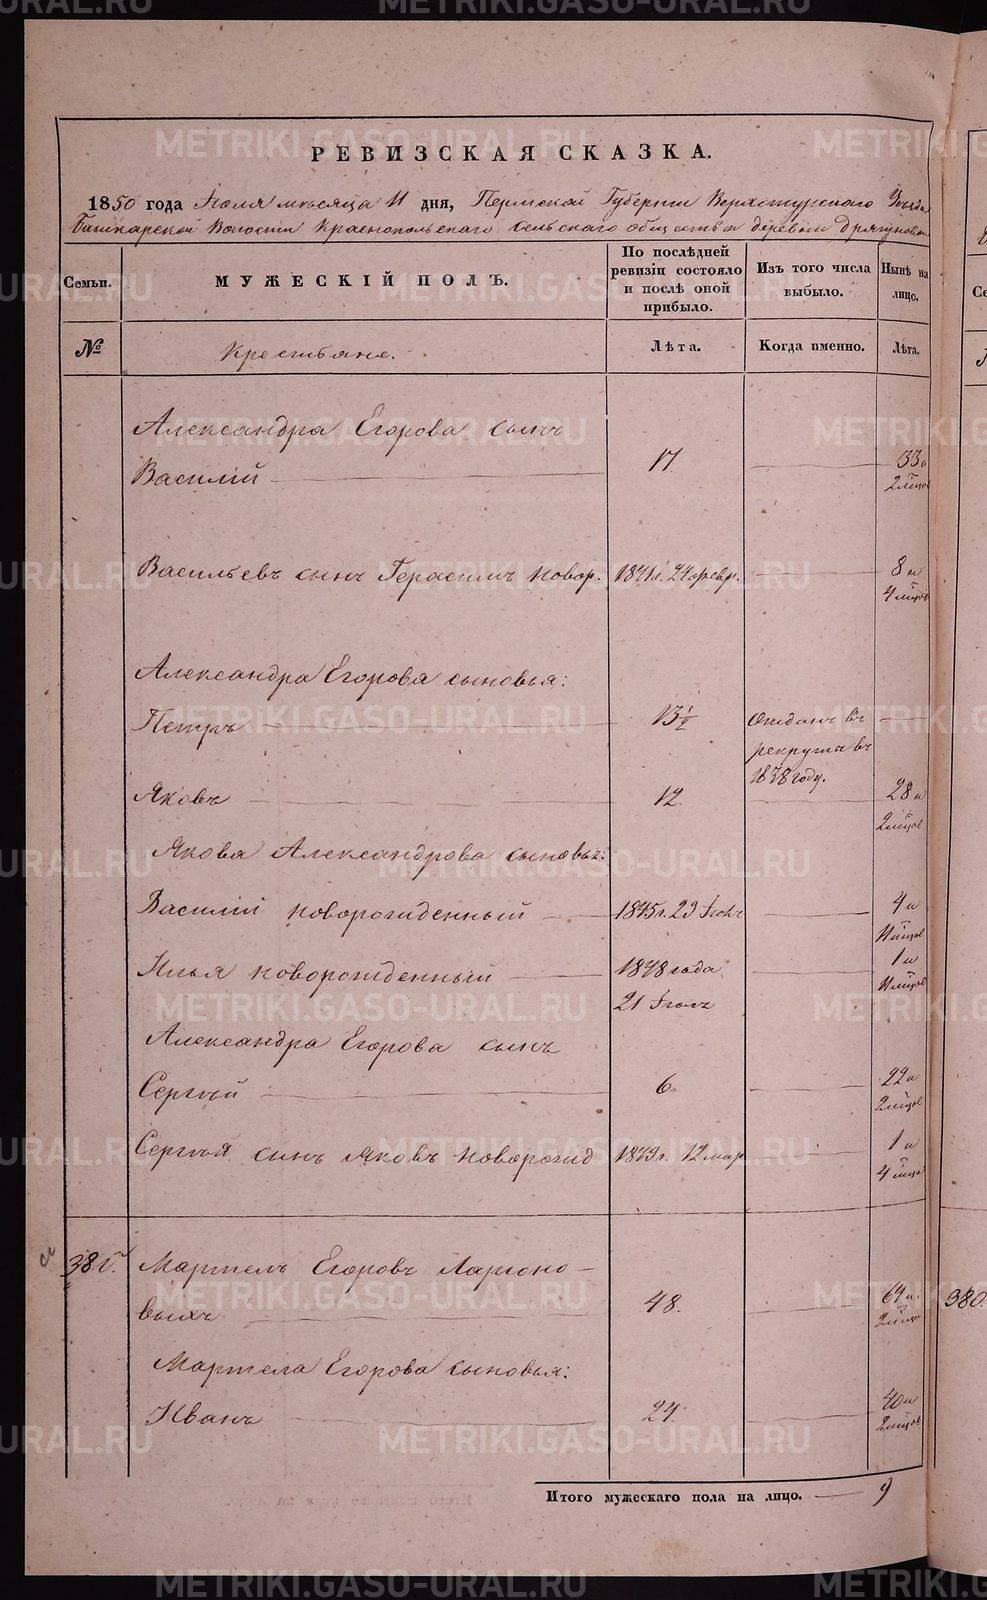 METRIKI.GASO-URAL.RU
РЕВИЗСКАЯ СКАЗКА.
1850 года Іюля мѣсяца 11 дня, Пермской Губерніи Верхотурскаго Уѣзда
Башкарской Волости Краснопольскаго сельскаго общества деревни Дрягунова.
Семьи.
МУЖЕСКІЙ ПОЛЪ.
По послѣдней ревизіи состояло и послѣ оной прибыло.
Изъ того числа выбыло.
Нынѣ на лицо.
№
Крестьяне.
Лѣта.
Когда именно.
Лѣта.
Александра Егорова сынъ
Василій 17. 33 и
Васильевъ сынъ Герасимъ новор. 1841 г. 24 февр. 8 и
Александра Егорова сыновья:
Петръ 13½ Отданъ въ
рекруты въ
1838 году.
Яковъ 12. 28 и
Якова Александрова сыновья:
Василій новорожденный 1845 г. 23 4 и
Илья новорожденный 1848 года 1 и
21
Александра Егорова сынъ
Сергѣй 6 22 и
Сергѣя сынъ Яковъ новорожд 1849 г. 12 мар 1 и
Мартемъ Егоровъ Ларионо-
выхъ 48. 64 и
Мартема Егорова сыновья:
Иванъ 24. 40 и
380.
Итого мужескаго пола на лицо. 9